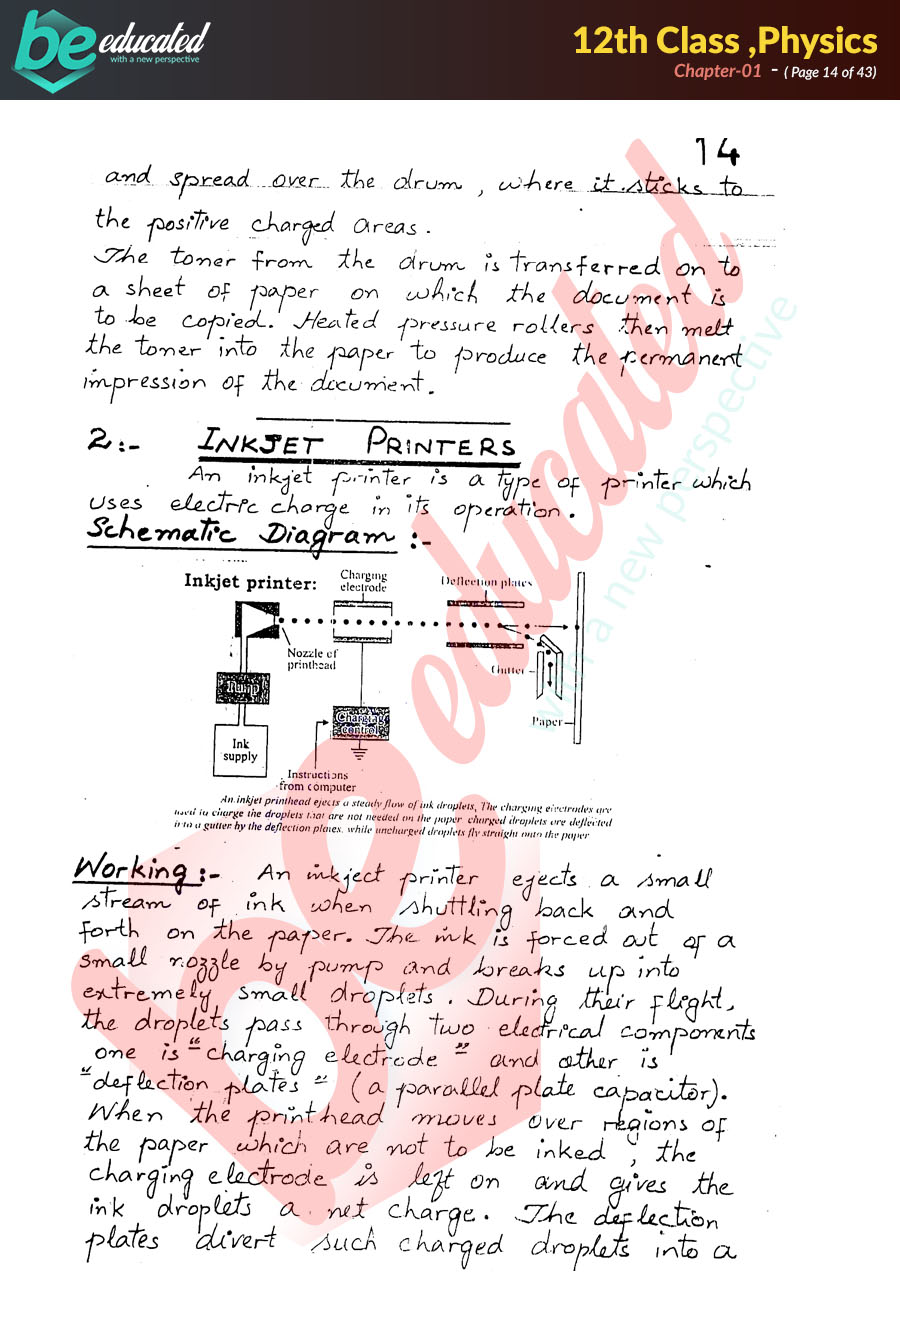 be educated
with a new perspective
12th Class ,Physics
Chapter-01 - ( Page 14 of 43)
14
and spread over the drum, where it sticks to
the positive charged areas.
The toner from the drum is transferred on to
a sheet of paper on which the document is
to be copied. Heated pressure rollers then melt
the toner into the paper to produce the permanent
impression of the document.
2:- INKJET PRINTERS
An inkjet printer is a type of printer which
uses electric charge in its operation.
Schematic Diagram :-
Inkjet printer:
Charging
electrode
Deflection plates
Nozzle of
printhead
Gutter
Pump
Charging
control
Paper
Ink
supply
Instructions
from computer
An inkjet printhead ejects a steady flow of ink droplets, The charging electrodes are
used to charge the droplets that are not needed on the paper. charged droplets are deflected
into a gutter by the deflection plates, while uncharged droplets fly straight onto the paper
Working :- An inkject printer ejects a small
stream of ink when shuttling back and
forth on the paper. The ink is forced out of a
small nozzle by pump and breaks up into
extremely small droplets. During their flight,
the droplets pass through two electrical components
one is "charging electrode" and other is
"deflection plates" (a parallel plate capacitor).
When the printhead moves over regions of
the paper which are not to be inked, the
charging electrode is left on and gives the
ink droplets a net charge. The deflection
plates divert such charged droplets into a
be educated
with a new perspective